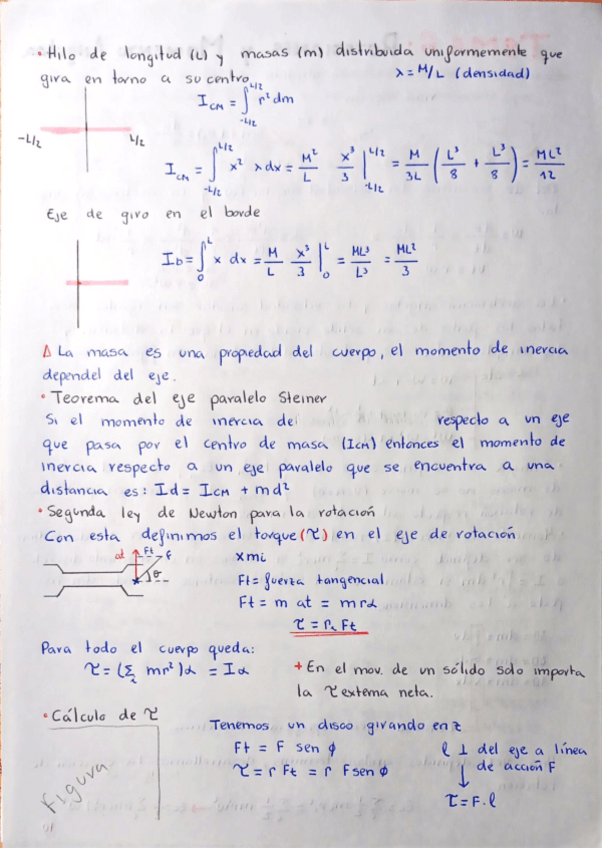 • Hilo de longitud (L) y masas (m) distribuida uniformemente que
gira en torno a su centro.
λ = M/L (densidad)
I_CM = ∫_{-L/2}^{L/2} r² dm
-L/2 L/2
I_CM = ∫_{-L/2}^{L/2} x² λ dx = M²/L x³/3 |_{-L/2}^{L/2} = M/3L (L³/8 + L³/8) = ML²/12
Eje de giro en el borde
I_b = ∫_0^L x dx = M/L x³/3 |_0^L = ML³/L³ = ML²/3
Δ La masa es una propiedad del cuerpo, el momento de inercia
dependel del eje.
• Teorema del eje paralelo Steiner
Si el momento de inercia de respecto a un eje
que pasa por el centro de masa (Icm) entonces el momento de
inercia respecto a un eje paralelo que se encuentra a una
distancia es: Id = I_CM + md²
• Segunda ley de Newton para la rotación
Con esta definimos el torque (τ) en el eje de rotación
at Ft F
θ
x mi
Ft = fuerza tangencial
Ft = m at = m r α
τ = r_i Ft
Para todo el cuerpo queda:
τ = (Σ_i mr²) α = I α
+ En el mov. de un sólido solo importa
la τ externa neta.
• Cálculo de τ
Figura
Tenemos un disco girando en z
Ft = F sen ϕ
τ = r Ft = r F sen ϕ
l ⊥ del eje a línea
↓ de acción F
τ = F · l